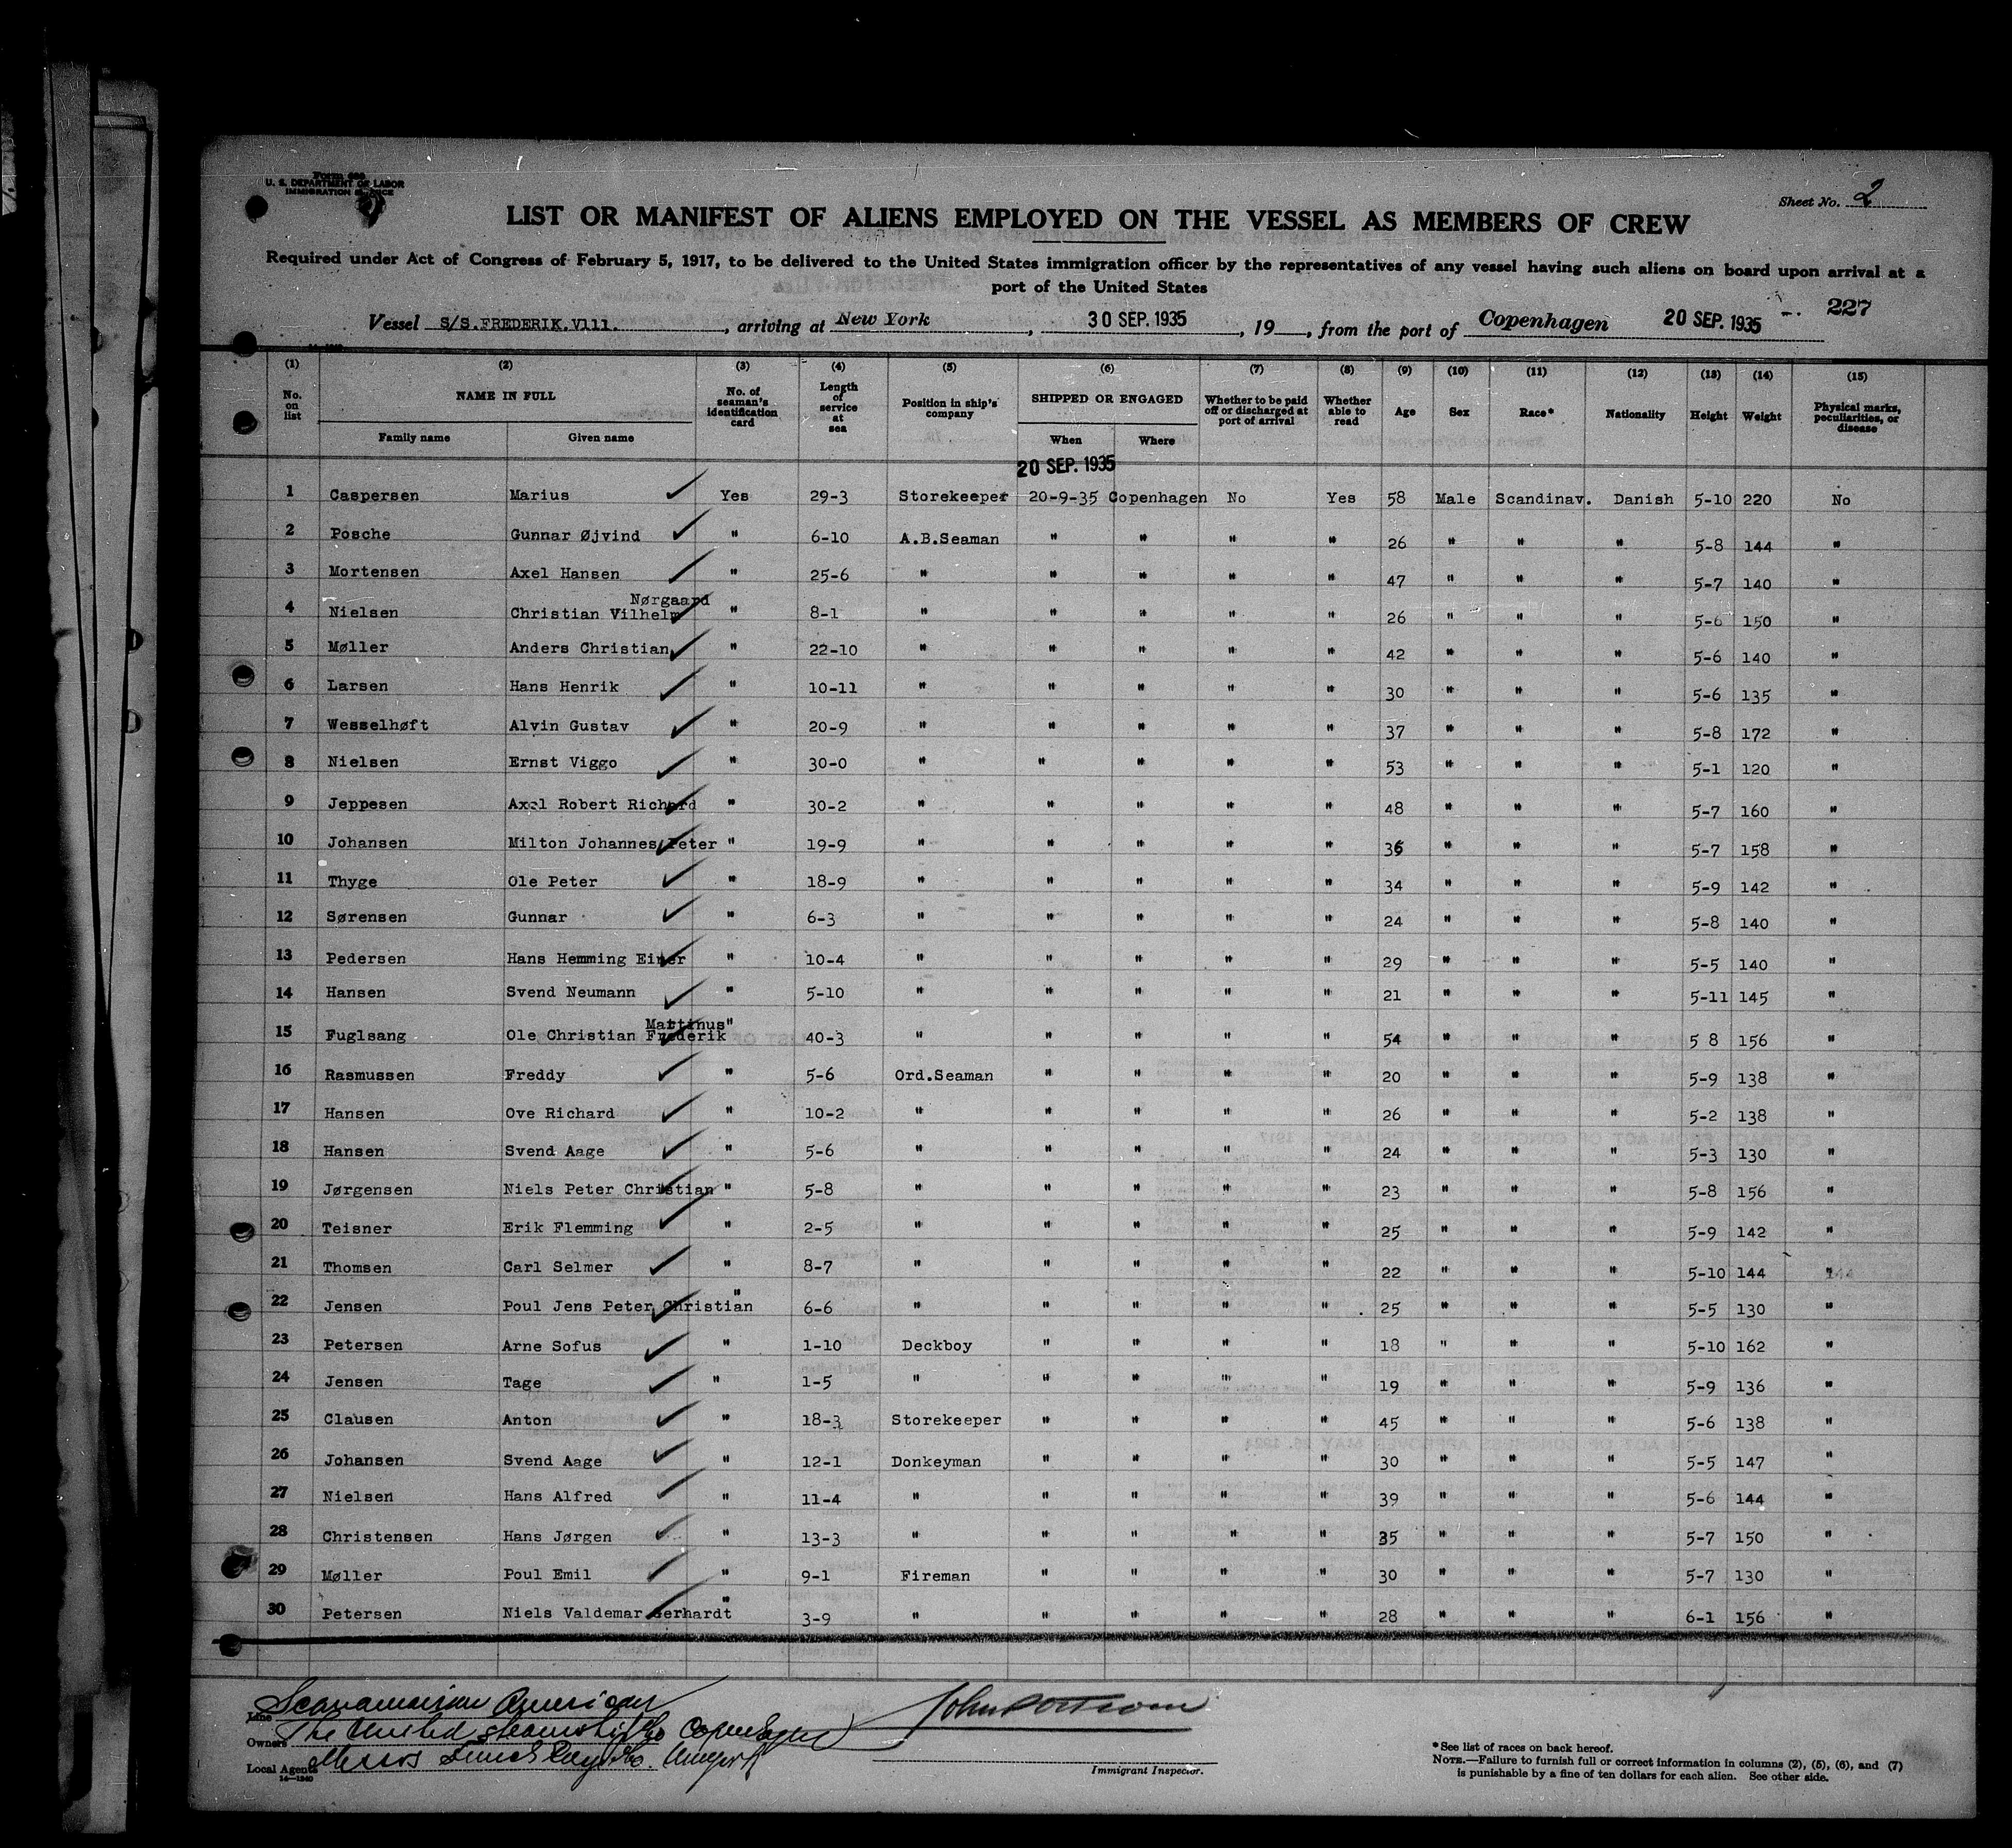 Form 680
U. S. DEPARTMENT OF LABOR
IMMIGRATION SERVICE
Sheet No. 2
LIST OR MANIFEST OF ALIENS EMPLOYED ON THE VESSEL AS MEMBERS OF CREW
Required under Act of Congress of February 5, 1917, to be delivered to the United States immigration officer by the representatives of any vessel having such aliens on board upon arrival at a
port of the United States
Vessel S/S.FREDERIK.V111. , arriving at New York , 30 SEP. 1935 , 19 , from the port of Copenhagen 20 SEP. 1935 227
(1) (2) (3) (4) (5) (6) (7) (8) (9) (10) (11) (12) (13) (14) (15)
No. on list NAME IN FULL Family name Given name No. of seaman's identification card Length of service at sea Position in ship's company SHIPPED OR ENGAGED When Where Whether to be paid off or discharged at port of arrival Whether able to read Age Sex Race* Nationality Height Weight Physical marks, peculiarities, or disease
20 SEP. 1935
1 Caspersen Marius Yes 29-3 Storekeeper 20-9-35 Copenhagen No Yes 58 Male Scandinav. Danish 5-10 220 No
2 Posche Gunnar Øjvind " 6-10 A.B.Seaman " " " " 26 " " " 5-8 144 "
3 Mortensen Axel Hansen " 25-6 " " " " " 47 " " " 5-7 140 "
4 Nielsen Christian Vilhelm Nørgaard " 8-1 " " " " " 26 " " " 5-6 150 "
5 Møller Anders Christian " 22-10 " " " " " 42 " " " 5-6 140 "
6 Larsen Hans Henrik " 10-11 " " " " " 30 " " " 5-6 135 "
7 Wesselhøft Alvin Gustav " 20-9 " " " " " 37 " " " 5-8 172 "
8 Nielsen Ernst Viggo " 30-0 " " " " " 53 " " " 5-1 120 "
9 Jeppesen Axel Robert Richard " 30-2 " " " " " 48 " " " 5-7 160 "
10 Johansen Milton Johannes Peter " 19-9 " " " " " 36 " " " 5-7 158 "
11 Thyge Ole Peter " 18-9 " " " " " 34 " " " 5-9 142 "
12 Sørensen Gunnar " 6-3 " " " " " 24 " " " 5-8 140 "
13 Pedersen Hans Hemming Einer " 10-4 " " " " " 29 " " " 5-5 140 "
14 Hansen Svend Neumann " 5-10 " " " " " 21 " " " 5-11 145 "
15 Fuglsang Ole Christian Martinus Frederik " 40-3 " " " " " 54 " " " 5 8 156 "
16 Rasmussen Freddy " 5-6 Ord.Seaman " " " " 20 " " " 5-9 138 "
17 Hansen Ove Richard " 10-2 " " " " " 26 " " " 5-2 138 "
18 Hansen Svend Aage " 5-6 " " " " " 24 " " " 5-3 130 "
19 Jørgensen Niels Peter Christian " 5-8 " " " " " 23 " " " 5-8 156 "
20 Teisner Erik Flemming " 2-5 " " " " " 25 " " " 5-9 142 "
21 Thomsen Carl Selmer " 8-7 " " " " " 22 " " " 5-10 144 "
22 Jensen Poul Jens Peter Christian " 6-6 " " " " " 25 " " " 5-5 130 "
23 Petersen Arne Sofus " 1-10 Deckboy " " " " 18 " " " 5-10 162 "
24 Jensen Tage " 1-5 " " " " " 19 " " " 5-9 136 "
25 Clausen Anton " 18-3 Storekeeper " " " " 45 " " " 5-6 138 "
26 Johansen Svend Aage " 12-1 Donkeyman " " " " 30 " " " 5-5 147 "
27 Nielsen Hans Alfred " 11-4 " " " " " 39 " " " 5-6 144 "
28 Christensen Hans Jørgen " 13-3 " " " " " 35 " " " 5-7 150 "
29 Møller Poul Emil " 9-1 Fireman " " " " 30 " " " 5-7 130 "
30 Petersen Niels Valdemar Gerhardt " 3-9 " " " " " 28 " " " 6-1 156 "
Line Scandinavian American
Owners The United Steamship Co Copenhagen
Local Agents Messrs Funch Edye & Co.
14—1240
Immigrant Inspector.
*See list of races on back hereof.
NOTE.—Failure to furnish full or correct information in columns (2), (5), (6), and (7)
is punishable by a fine of ten dollars for each alien. See other side.